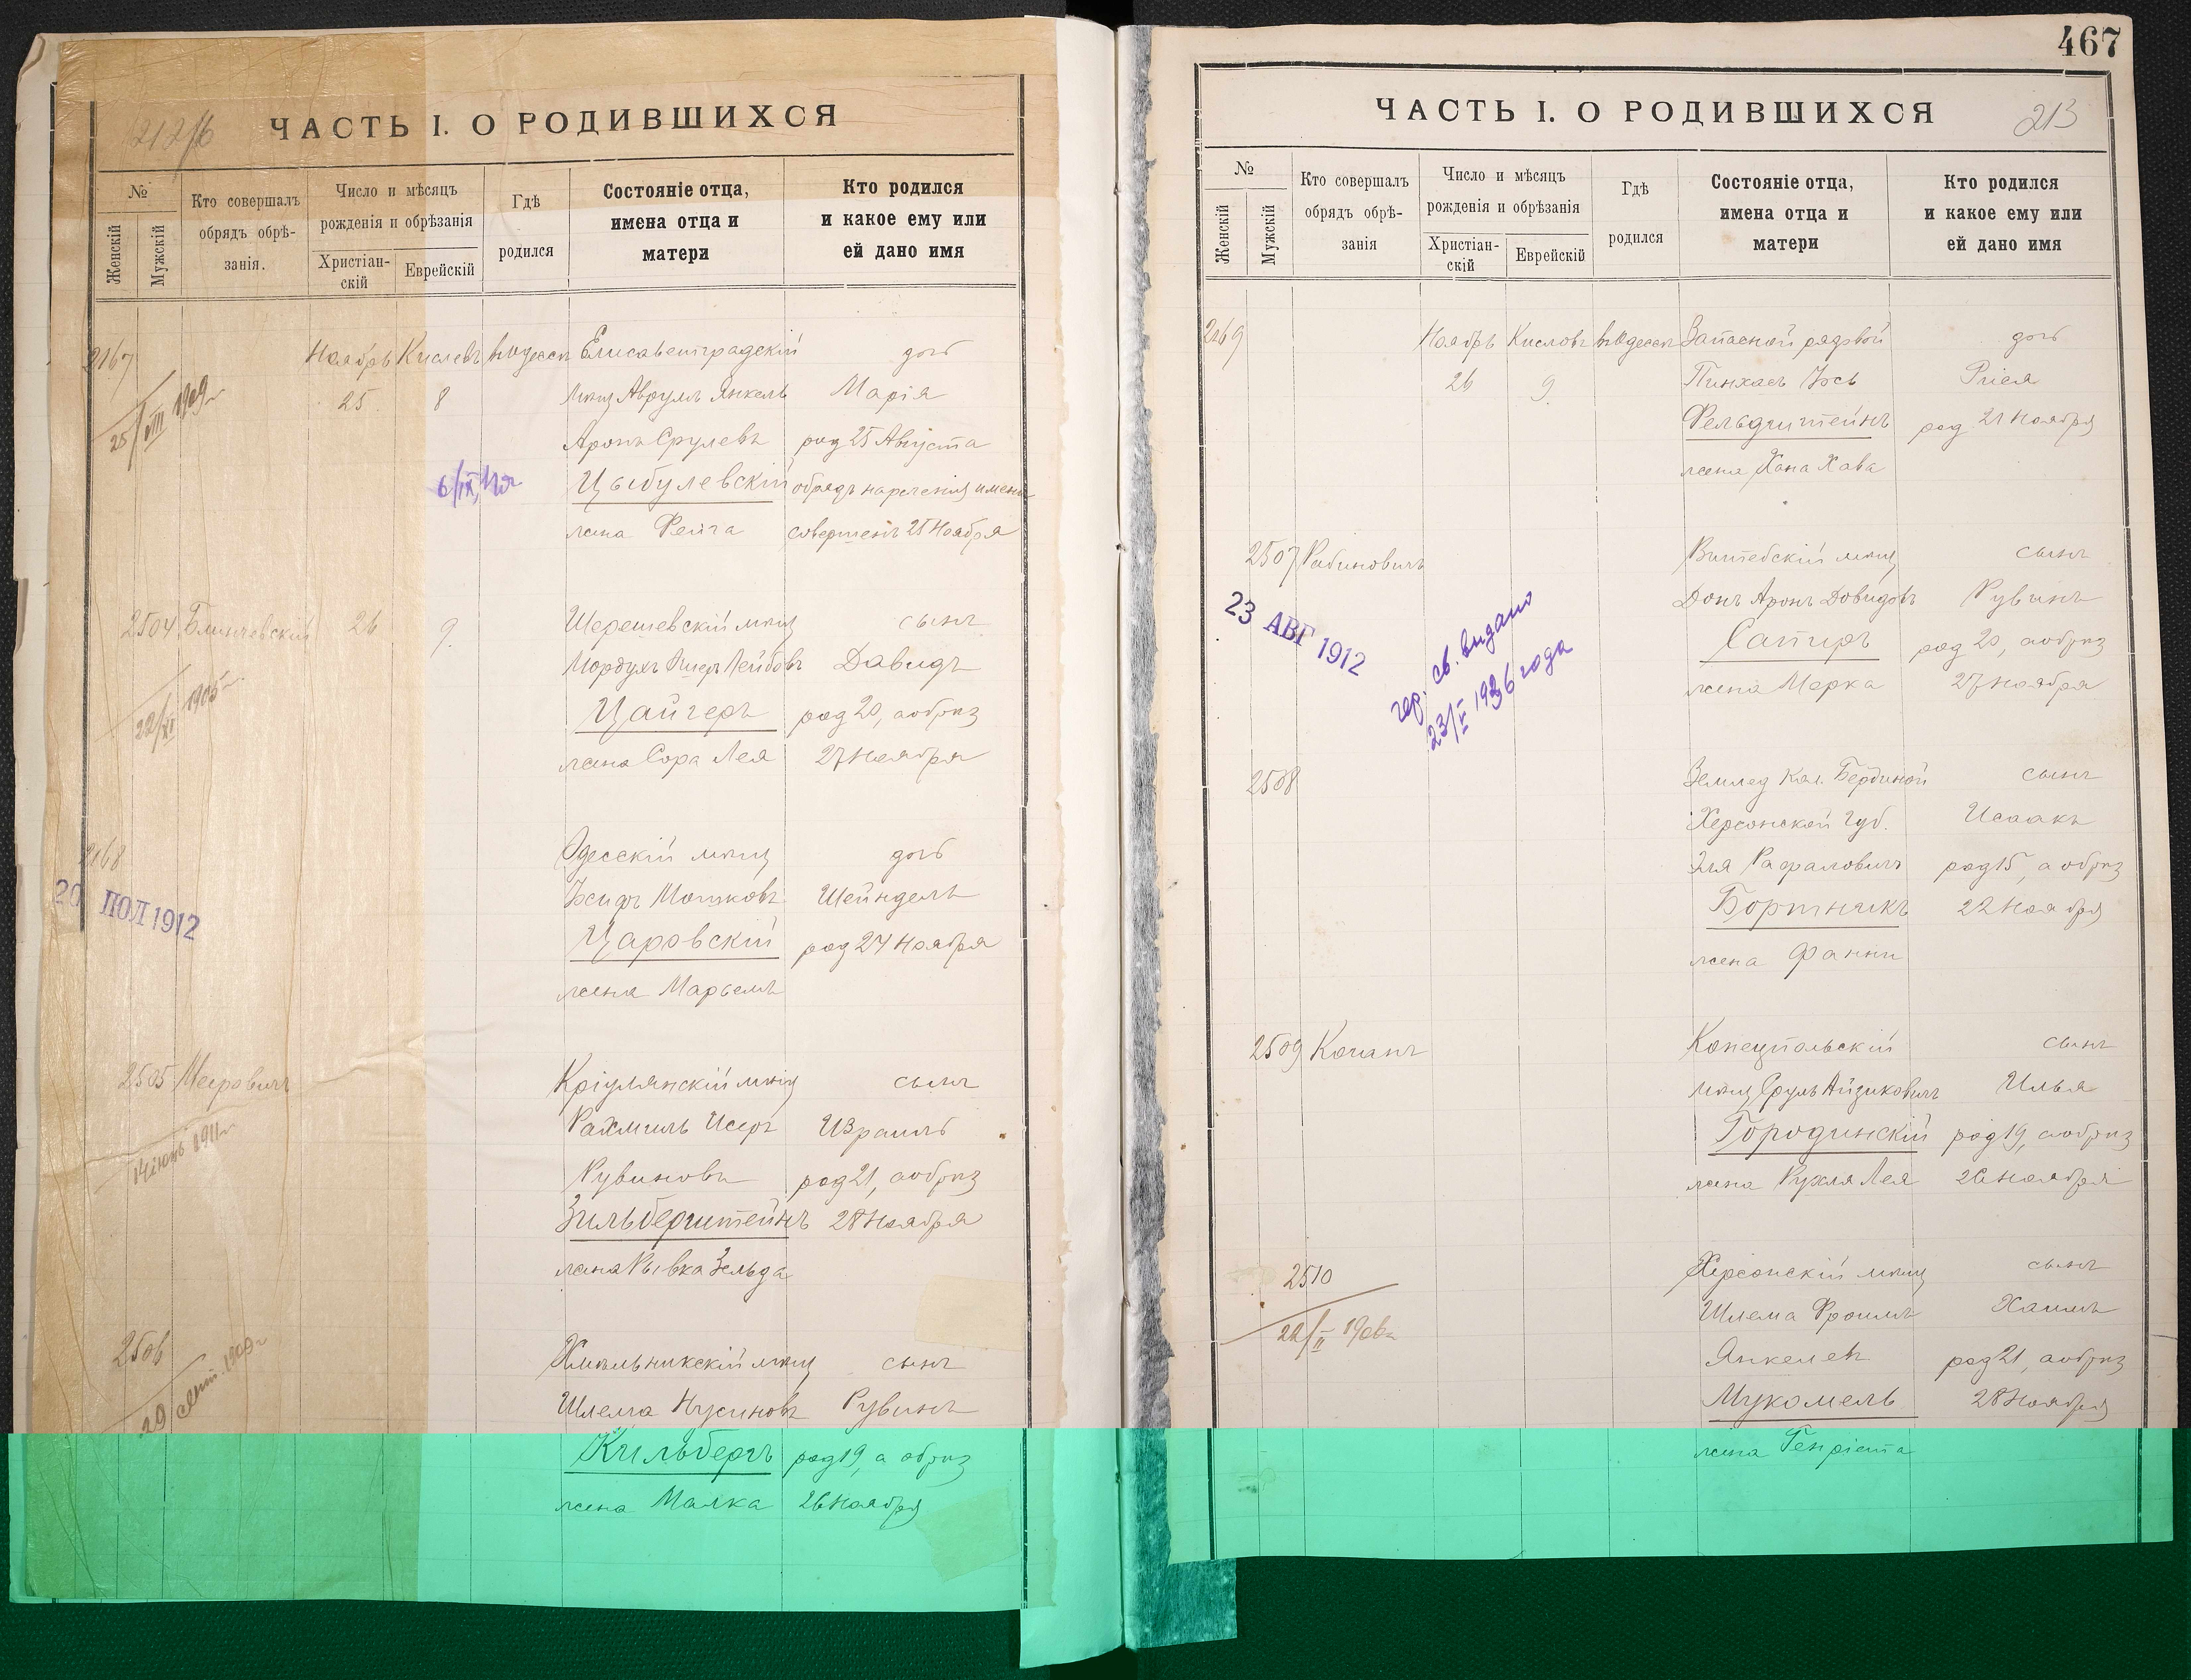 212 об
ЧАСТЬ I. О РОДИВШИХСЯ
№
Женскій
Мужскій
Кто совершалъ
обрядъ обрѣ-
занія.
Число и мѣсяцъ
рожденія и обрѣзанія
Христіан-
скій
Еврейскій
Гдѣ
родился
Состояніе отца,
имена отца и
матери
Кто родился
и какое ему или
ей дано имя
2167 Ноябрь Кислевъ въ Одессѣ Елисаветградскій дочь
25 8 мѣщ Аврумъ Янкель Марія
25/VIII 1909 г
Аронъ Срулевъ род 25 Августа
6/IX
Цыбулевскій обрядъ нареченія имени
жена Фейга совершенъ 25 Ноября
2504 Блинчевскій 26 9. Шерешевскій мѣщ сынъ
Мордухъ Ошеръ Лейбовъ Давидъ
22/XI 1905 г.
Цайгеръ род 20, а обрѣз
жена Сора Лея 27 Ноября
2168 Одесскій мѣщ дочь
20 ІЮЛ 1912
Іосифъ Мошковъ Шейндель
Царовскій род 24 Ноября
жена Марьемъ
2505 Меировичъ Кріулянскій мѣщ сынъ
14 іюнь 1911 г
Рахмиль Исеръ Израиль
Рувиновъ род 21, а обрѣз
Зильберштейнъ 28 Ноября
жена Рывка Зельда
2506 Хмѣльникскій мѣщ сынъ
29 сент. 1909 г
Шлема Нусиновъ Рувинъ
Кильбергъ род 19, а обрѣз
жена Малка 26 Ноября
467
ЧАСТЬ I. О РОДИВШИХСЯ
213
№
Женскій
Мужскій
Кто совершалъ
обрядъ обрѣ-
занія
Число и мѣсяцъ
рожденія и обрѣзанія
Христіан-
скій
Еврейскій
Гдѣ
родился
Состояніе отца,
имена отца и
матери
Кто родился
и какое ему или
ей дано имя
2169 Ноябрь Кислевъ въ Одессѣ Запасной рядовой дочь
26 9. Пинхасъ Іось
Фельдштейнъ род 21 Ноября
жена Хана Хава
2507 Рабиновичъ Витебскій мѣщ сынъ
23 АВГ 1912
Донъ Аронъ Довидовъ Рувинъ
гер. св. видано
23/V 1936 года
Сапиръ род 20, а обрѣз
жена Мерка 27 Ноября
2508 Землед кол. Бербиной сынъ
Херсонской губ. Исаакъ
Эля Рафаловичъ род 15, а обрѣз
Бортникъ 22 Ноября
жена Фанни
2509 Коганъ Конецпольскій сынъ
мѣщ Сруль Айзиковичъ Илья
Городинскій род 19, а обрѣз
жена Рухля Лея 26 Ноября
2510 Херсонскій мѣщ сынъ
22/II 1906 г
Шлема Фроимъ Хаимъ
Янкелевъ род 21, а обрѣз
Мукомель 28 Ноября
жена Генріета